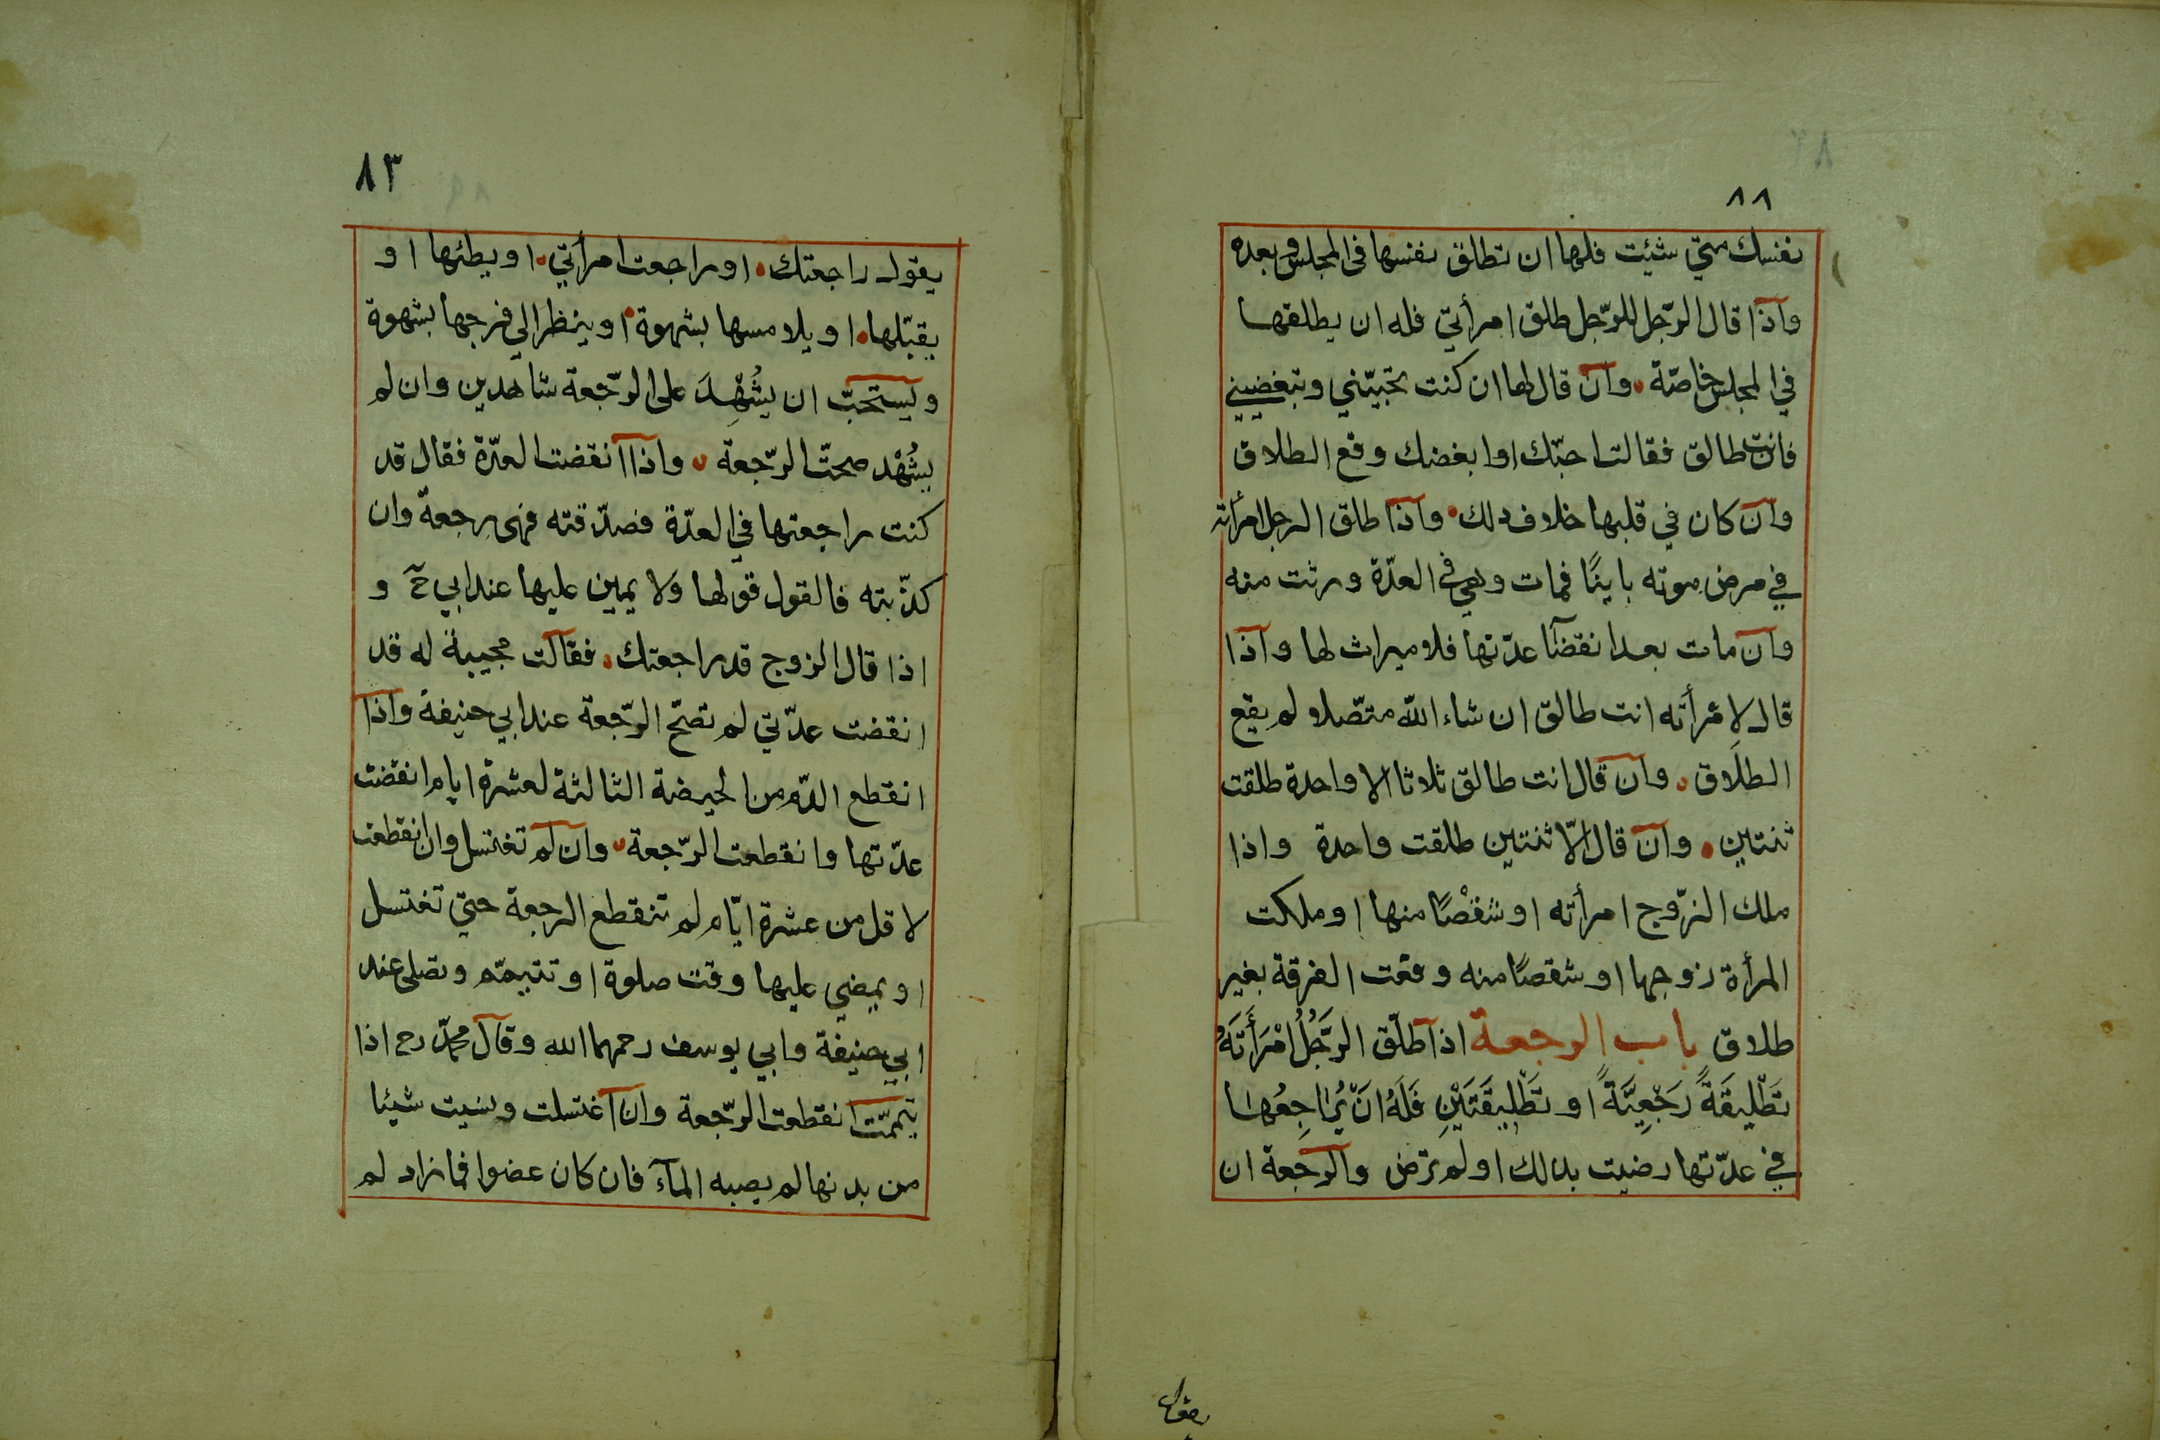 ٨٨
نفسك متي شئت فلها ان تطلق نفسها في المجلس وبعده
واذا قال الرّجل للرّجل طلق امرأتي فله ان يطلقها
في المجلس خاصّة وان قال لها ان كنت تحبيّني وتبغضيني
فانت طالق فقالت احبّك او ابغضك وقع الطلاق
وان كان في قلبها خلاف ذلك واذا طلق الرجل امرأته
في مرض موته باينًا فمات وهي في العدّة ورثت منه
وان مات بعد انقضآ عدّتها فلا ميراث لها واذا
قال لامرأته انت طالق ان شاء الله متّصلا لم يقع
الطلَاق وان قال انت طالق ثلاثا الا واحدة طلقت
ثنتين وان قال الّا ثنتين طلقت واحدة واذا
ملك الزّوج امرأته او شقْصًا منها او ملكت
المرأة زوجها او شقصًا منه وقعت الفرقة بغير
طلاق باب الرجعة اذا طلّق الرَّجُلُ امْرَأَتَهُ
تَطْلِيقَةً رَجْعِيَّةً او تَطْلِيقَتَيْنِ فَلَهُ انْ يُرَاجِعُها
في عدّتها رضيت بذلك او لم ترض والرجعة ان
يقول
٨٣
يقول راجعتك او راجعت امرأتي او يطئها او
يقبّلها او يلامسها بشهوة او ينظر الي فرجها بشهوة
ويستحبّ ان يُشْهِدَ على الرّجعة شاهدين وان لم
يشُهْد صحتّ الرّجعة واذا انقضت العدّة فقال قد
كنت راجعتها في العدّة فصدّقته فهى رجعة وان
كذّبته فالقول قولها ولا يمين عليها عند ابي حَ و
اذا قال الزوج قد راجعتك فقالت مجيبة له قد
انقضت عدّتي لم تصحّ الرّجعة عند ابي حنيفة واذا
انقطع الدّم من الحيضة الثالثة لعشرة ايام انقضت
عدّتها وانقطعت الرّجعة وان لم تغتسل وان انقطعت
لاقل من عشرة ايّام لم تنقطع الرجعة حتي تغتسل
او يمضي عليها وقت صلوة او تتيمّم وتصلى عند
ابي حنيفة وابي يوسف رحمهما الله وقال محمّد رح اذا
تيممّت انقطعت الرّجعة وان اغتسلت ونسيت شيئا
من بدنها لم يصبه المآء فان كان عضوا فما زاد لم